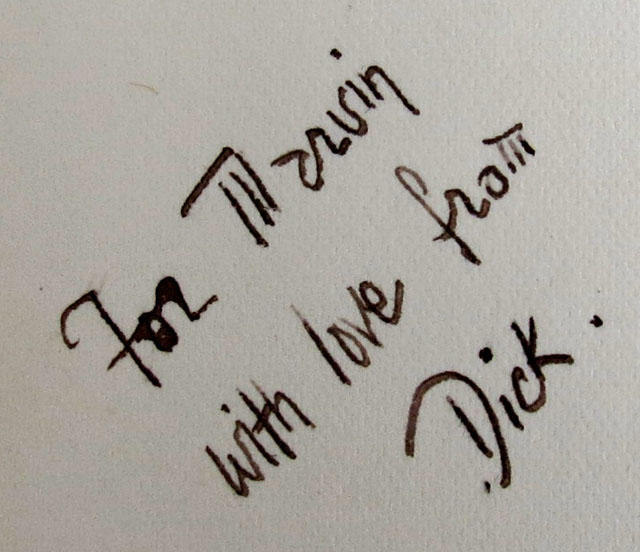 For Marvin
with love from
Dick.